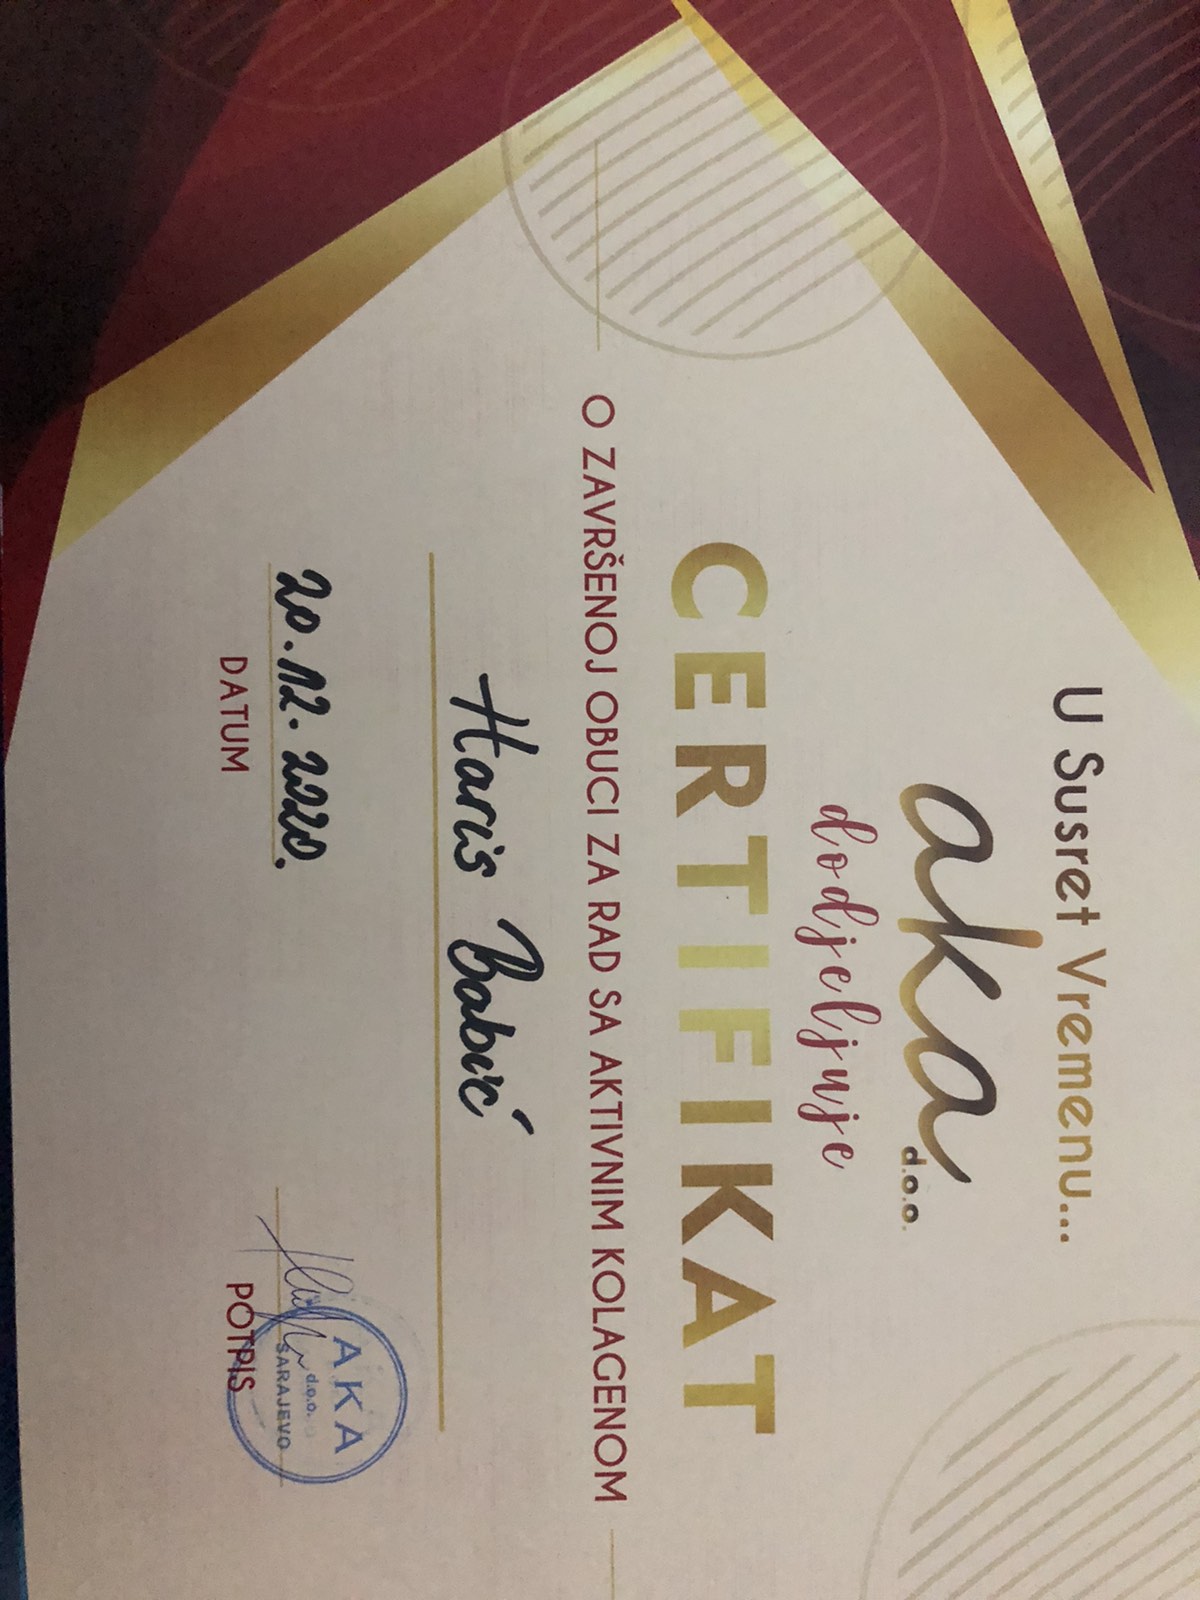 U Susret Vremenu...
aka d.o.o.
dodjeljuje
CERTIFIKAT
O ZAVRŠENOJ OBUCI ZA RAD SA AKTIVNIM KOLAGENOM
Haris Babić
20.12.2020.
DATUM
AKA
d.o.o.
SARAJEVO
POTPIS